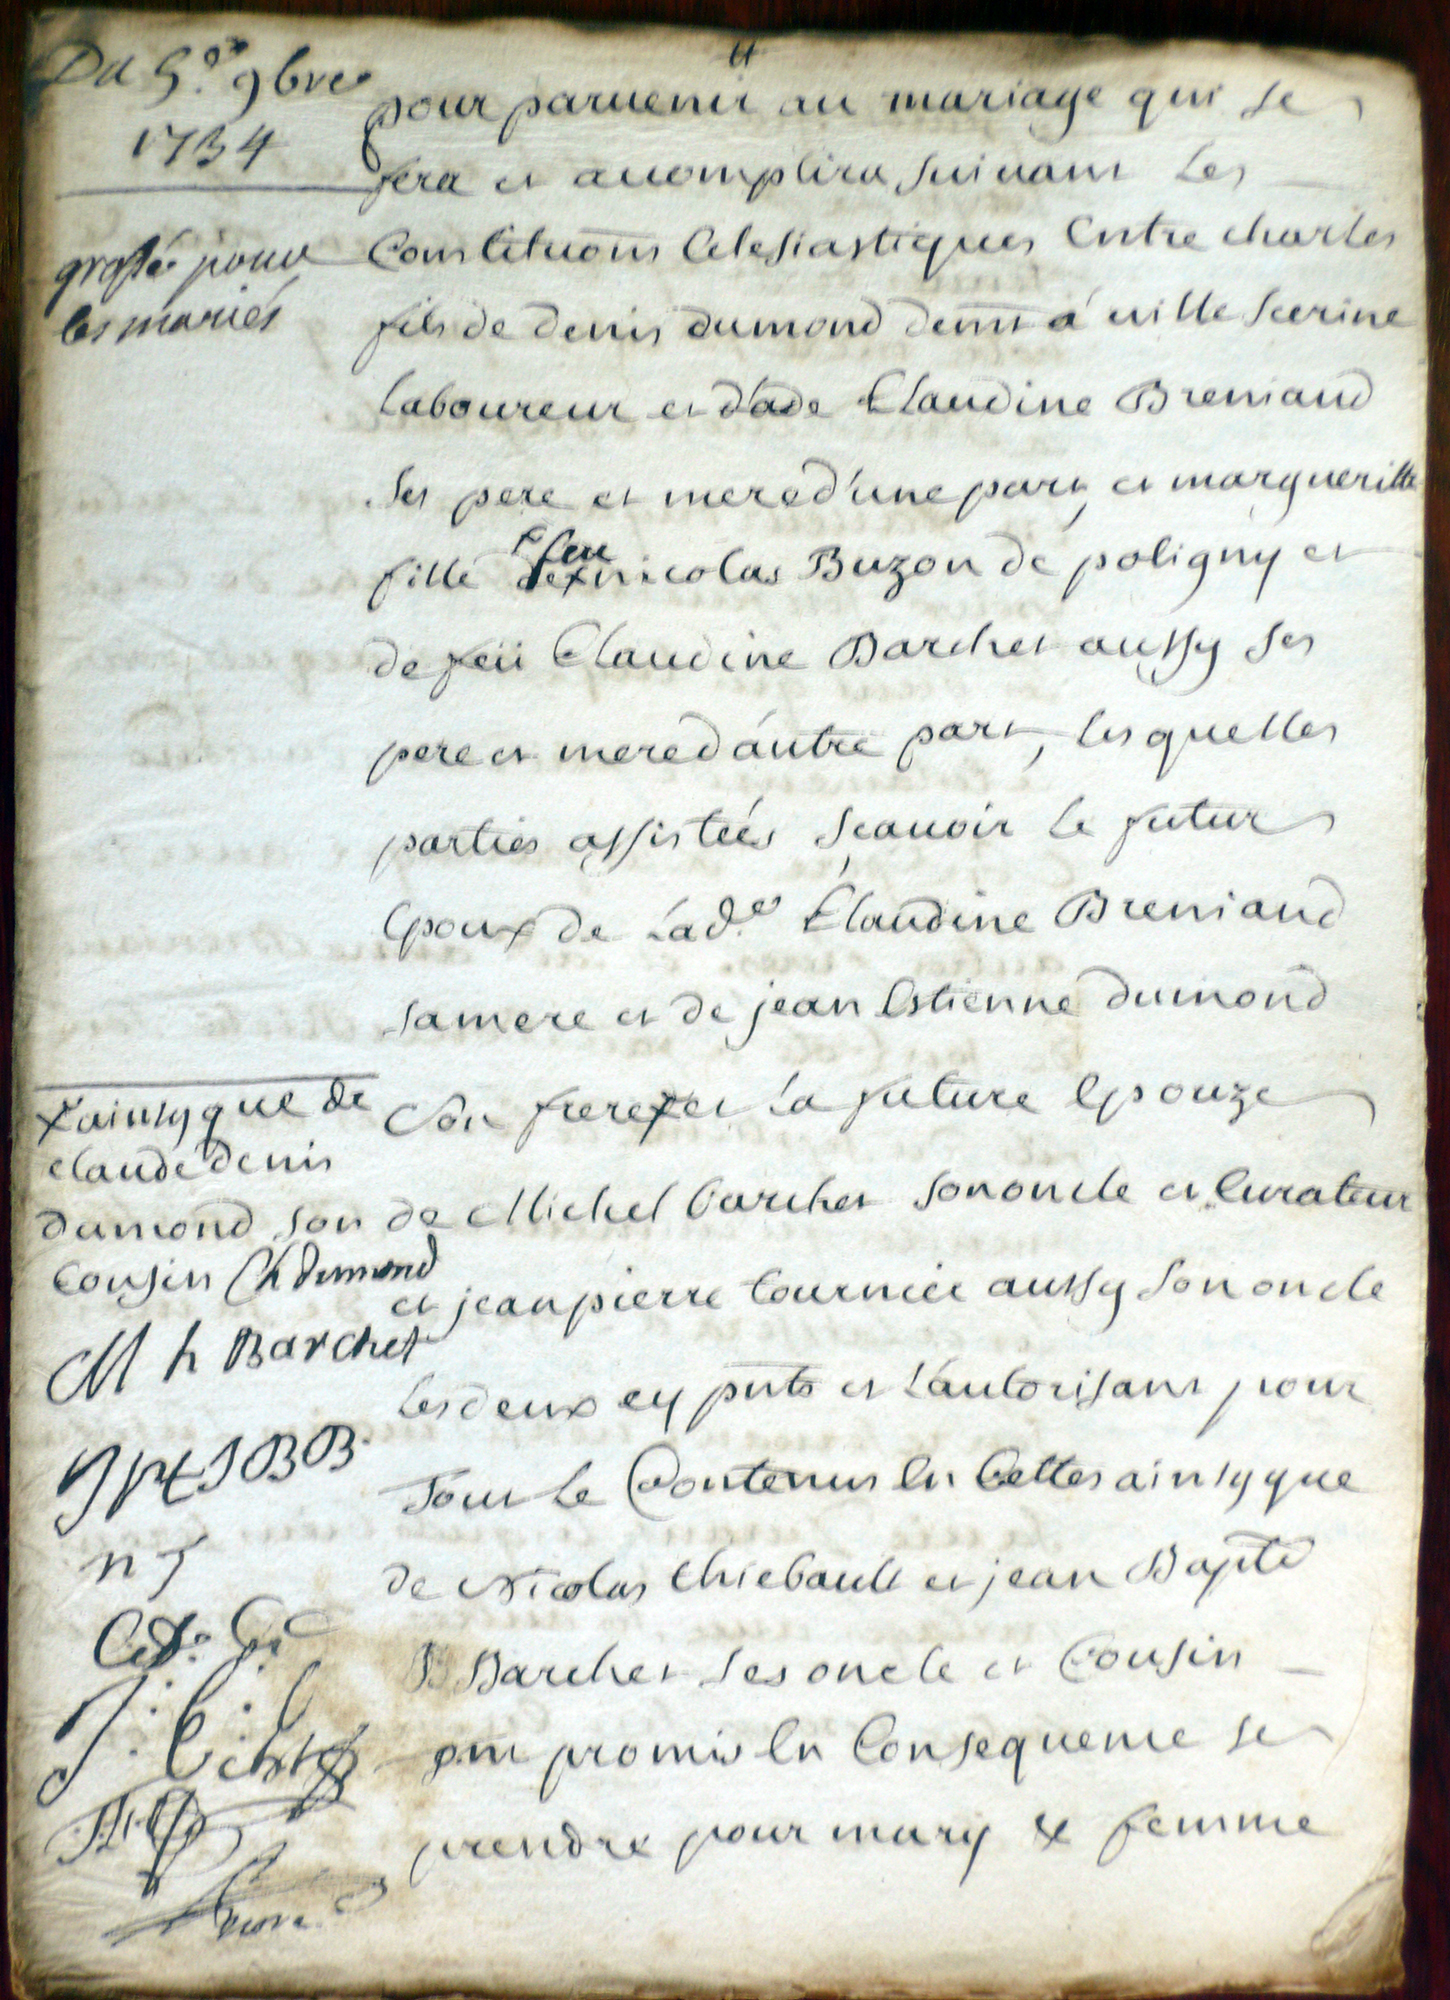 Du 5.e 9bre
1734
grossé pour
les mariés
pour paruenir au mariage qui se
fera et accomplira suiuant les
Constituõns Eclesiastiques Entre charles
fils de denis dumond demt á uille serine
laboureur et d'ade Claudine Breniaud
ses pere et mere d'une part, et margueritte
fille de feu nicolas Buzon de poligny et
de feü Claudine Barchet aussy ses
pere et mere d'autre part, lesquelles
parties assistées scauoir le futur
Epoux de lad.e Claudine Breniaud
sa mere et de jean Estienne dumond
son frere x et la future Epouze
x ainsy que de
claude denis
dumond son
Cousin Ch dumond
M h Barchet
de Michel barchet son oncle et Curateur
et jean pierre tournier aussy son oncle
les deux cy pnts et l'autorisant pour
Tout le Contenus En Cettes ainsy que
de Nicolas thiebault et jean Bapte
Barchet ses oncle et Cousin
ont promis En Consequence se
prendre pour mary & femme
J B B
n T